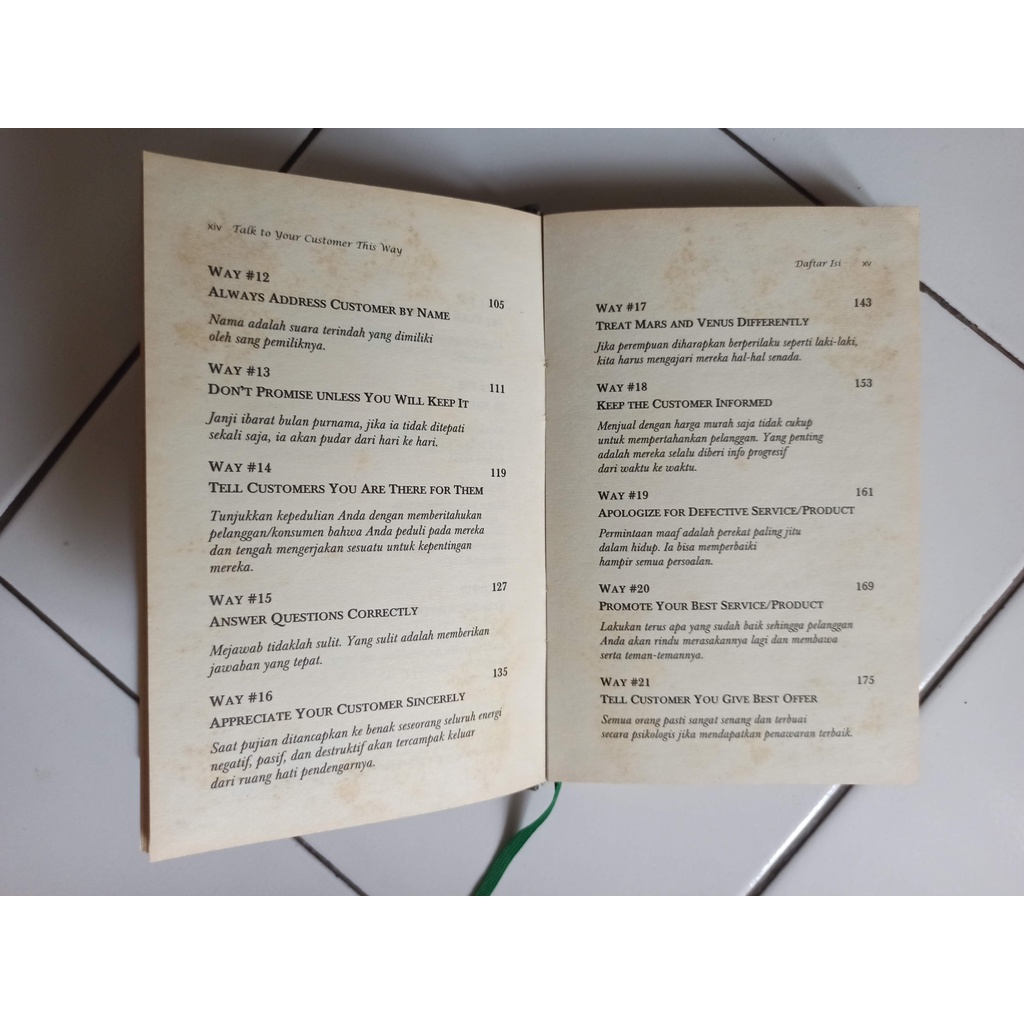 xiv Talk to Your Customer This Way
WAY #12
ALWAYS ADDRESS CUSTOMER BY NAME 105
Nama adalah suara terindah yang dimiliki
oleh sang pemiliknya.
WAY #13
DON'T PROMISE UNLESS YOU WILL KEEP IT 111
Janji ibarat bulan purnama, jika ia tidak ditepati
sekali saja, ia akan pudar dari hari ke hari.
WAY #14
TELL CUSTOMERS YOU ARE THERE FOR THEM 119
Tunjukkan kepedulian Anda dengan memberitahukan
pelanggan/konsumen bahwa Anda peduli pada mereka
dan tengah mengerjakan sesuatu untuk kepentingan
mereka.
WAY #15 127
ANSWER QUESTIONS CORRECTLY
Mejawab tidaklah sulit. Yang sulit adalah memberikan
jawaban yang tepat.
WAY #16 135
APPRECIATE YOUR CUSTOMER SINCERELY
Saat pujian ditancapkan ke benak seseorang seluruh energi
negatif, pasif, dan destruktif akan tercampak keluar
dari ruang hati pendengarnya.
Daftar Isi xv
WAY #17 143
TREAT MARS AND VENUS DIFFERENTLY
Jika perempuan diharapkan berperilaku seperti laki-laki,
kita harus mengajari mereka hal-hal senada.
WAY #18 153
KEEP THE CUSTOMER INFORMED
Menjual dengan harga murah saja tidak cukup
untuk mempertahankan pelanggan. Yang penting
adalah mereka selalu diberi info progresif
dari waktu ke waktu.
WAY #19 161
APOLOGIZE FOR DEFECTIVE SERVICE/PRODUCT
Permintaan maaf adalah perekat paling jitu
dalam hidup. Ia bisa memperbaiki
hampir semua persoalan.
WAY #20 169
PROMOTE YOUR BEST SERVICE/PRODUCT
Lakukan terus apa yang sudah baik sehingga pelanggan
Anda akan rindu merasakannya lagi dan membawa
serta teman-temannya.
WAY #21 175
TELL CUSTOMER YOU GIVE BEST OFFER
Semua orang pasti sangat senang dan terbuai
secara psikologis jika mendapatkan penawaran terbaik.